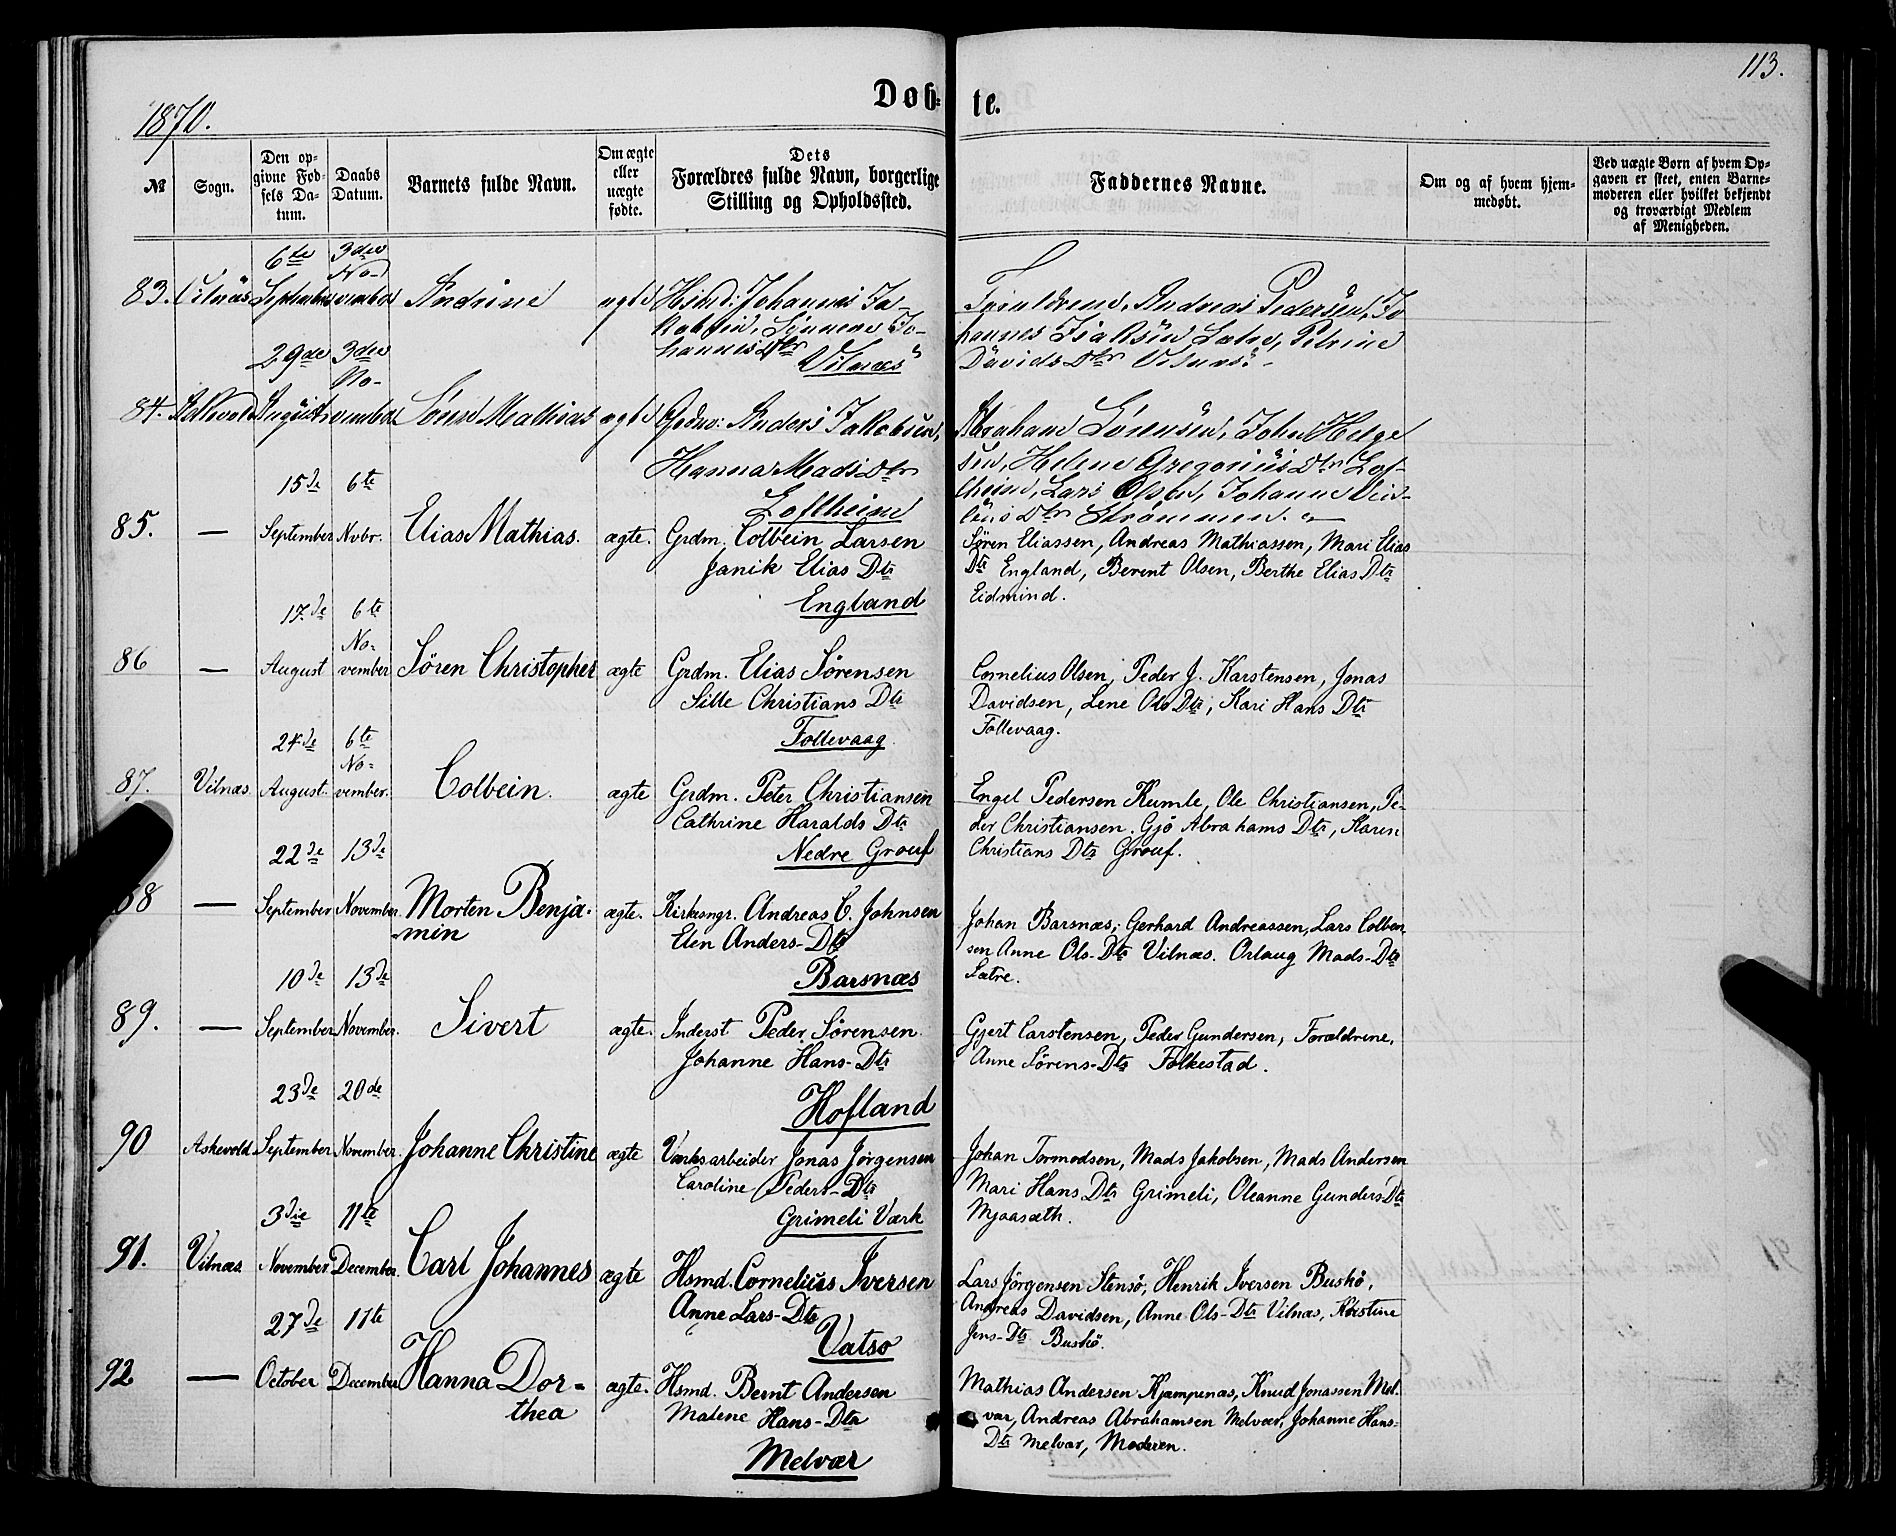 113.
1870.
Døb= te.
№
Sogn.
Den op-
givne Fød-
sels Da-
tum.
Daabs
Datum.
Barnets fulde Navn.
Om ægte
eller
uægte
fødte.
Dets
Forældres fulde Navn, borgerlige
Stilling og Opholdssted.
Faddernes Navne.
Om og af hvem hjem-
medøbt.
Ved uægte Børn af hvem Op-
gaven er skeet, enten Barne-
moderen eller hvilket bekjendt
og troværdigt Medlem
af Menigheden.
6te 3die
No-
83. Vilnæs September vember Andrine ægte Johannes Ja-
kobsen, Jo-
hannesDtr
Vilnæs
Forældrene, Andreas Pedersen, Jo
hannes Sætre, Petrine
DavidsDtr Vilnæs.
29de 3die
No-
84. Askevold August vember Mathias ægte Anders Jakobsen,
Hanna MadsDtr
Loftheim
Abraham Sørensen, John Helge
sen, Helene GregoriusDtr Lof-
theim, Lars Olsen, Johanne
Dtr Strømmen.
15de 6te
85. — September Novbr. Elias Mathias. ægte. Grdm. Colbein Larsen
Janik Elias Dtr
England
Søren Eliassen, Andreas Mathiassen, Mari Elias
Dtr England, Berent Olsen, Berthe Elias Dtr
Eidmind.
17de 6te
No-
86 — August vember Søren Christopher ægte Grdm. Elias Sørensen
Silte Christians Dtr
Follevaag
Cornelius Olsen, Peder J. Karstensen, Jonas
Davidsen, Lene Ols Dtr, Kari Hans Dtr
Follevaag.
24de 6te
No-
87. Vilnæs August. vember. Colbein. ægte Grdm. Peter Christiansen
Cathrine Haralds Dtr
Nedre Grouf
Engel Pedersen Kumle, Ole Christiansen, Pe-
der Christiansen. Gjø Abrahams Dtr, Karen
Christians Dtr Grouf.
22de 13de
88 — September November. Morten Benja-
min ægte. Kirkesngr. Andreas C. Johnsen
Elen Anders-Dtr
Barsnæs
Johan Barsnæs, Gerhard Andreassen, Lars Colben
sen Anne Ols-Dtr Vilnæs. Orlaug Mads-Dtr
Sætre.
10de 13de
89. — September November. Sivert ægte. Inderst Peder Sørensen
Johanne Hans-Dtr
Hofland
Gjert Carstensen, Peder Gundersen, Forældrene,
Anne Sørens-Dtr Folkestad.
23de 20de
90 Askevold September November. Johanne Christine ægte Værksarbeider Jonas Jørgensen
Caroline Peders-Dtr
Grimeli Værk
Johan Tormodsen, Mads Jakobsen, Mads Andersen
Mari Hans Dtr Grimeli, Oleanne Gunders Dtr
Mjaasæth.
3die 11te
91. Vilnæs November December. Carl Johannes ægte Hsmd. Cornelius Iversen
Anne Lars-Dtr
Vatsø
Lars Jørgensen Stensø, Henrik Iversen Buskø,
Andreas Davidsen, Anne Ols-Dtr Vilnæs, Kirstine
Jens-Dtr Buskø.
27de 11te
92 — October December Hanna Dor-
thea ægte. Hsmd. Bernt Andersen
Malene Hans-Dtr
Melvær
Mathias Andersen Kjempenæs, Knud Jonassen Mel-
vær, Andreas Abrahamsen Melvær, Johanne Hans-
Dtr Melvær, Moderen.